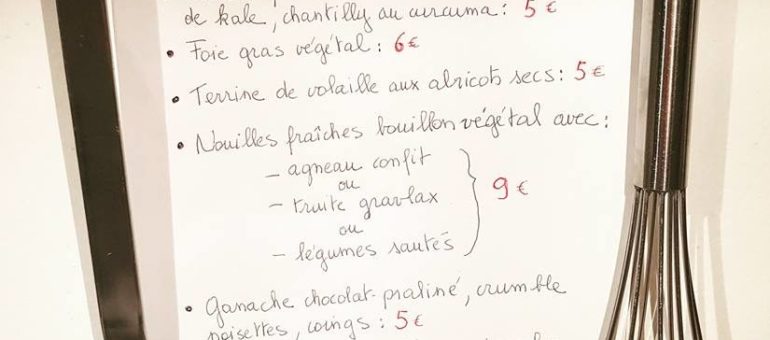 de kale, chantilly au curcuma : 5 €
• Foie gras végétal : 6€
• Terrine de volaille aux abricots secs : 5€
• Nouilles fraîches bouillon végétal avec :
- agneau confit
ou
- truite gravlax
9 €
ou
- légumes sautés
• Ganache chocolat-praliné, crumble
noisettes, coings : 5€